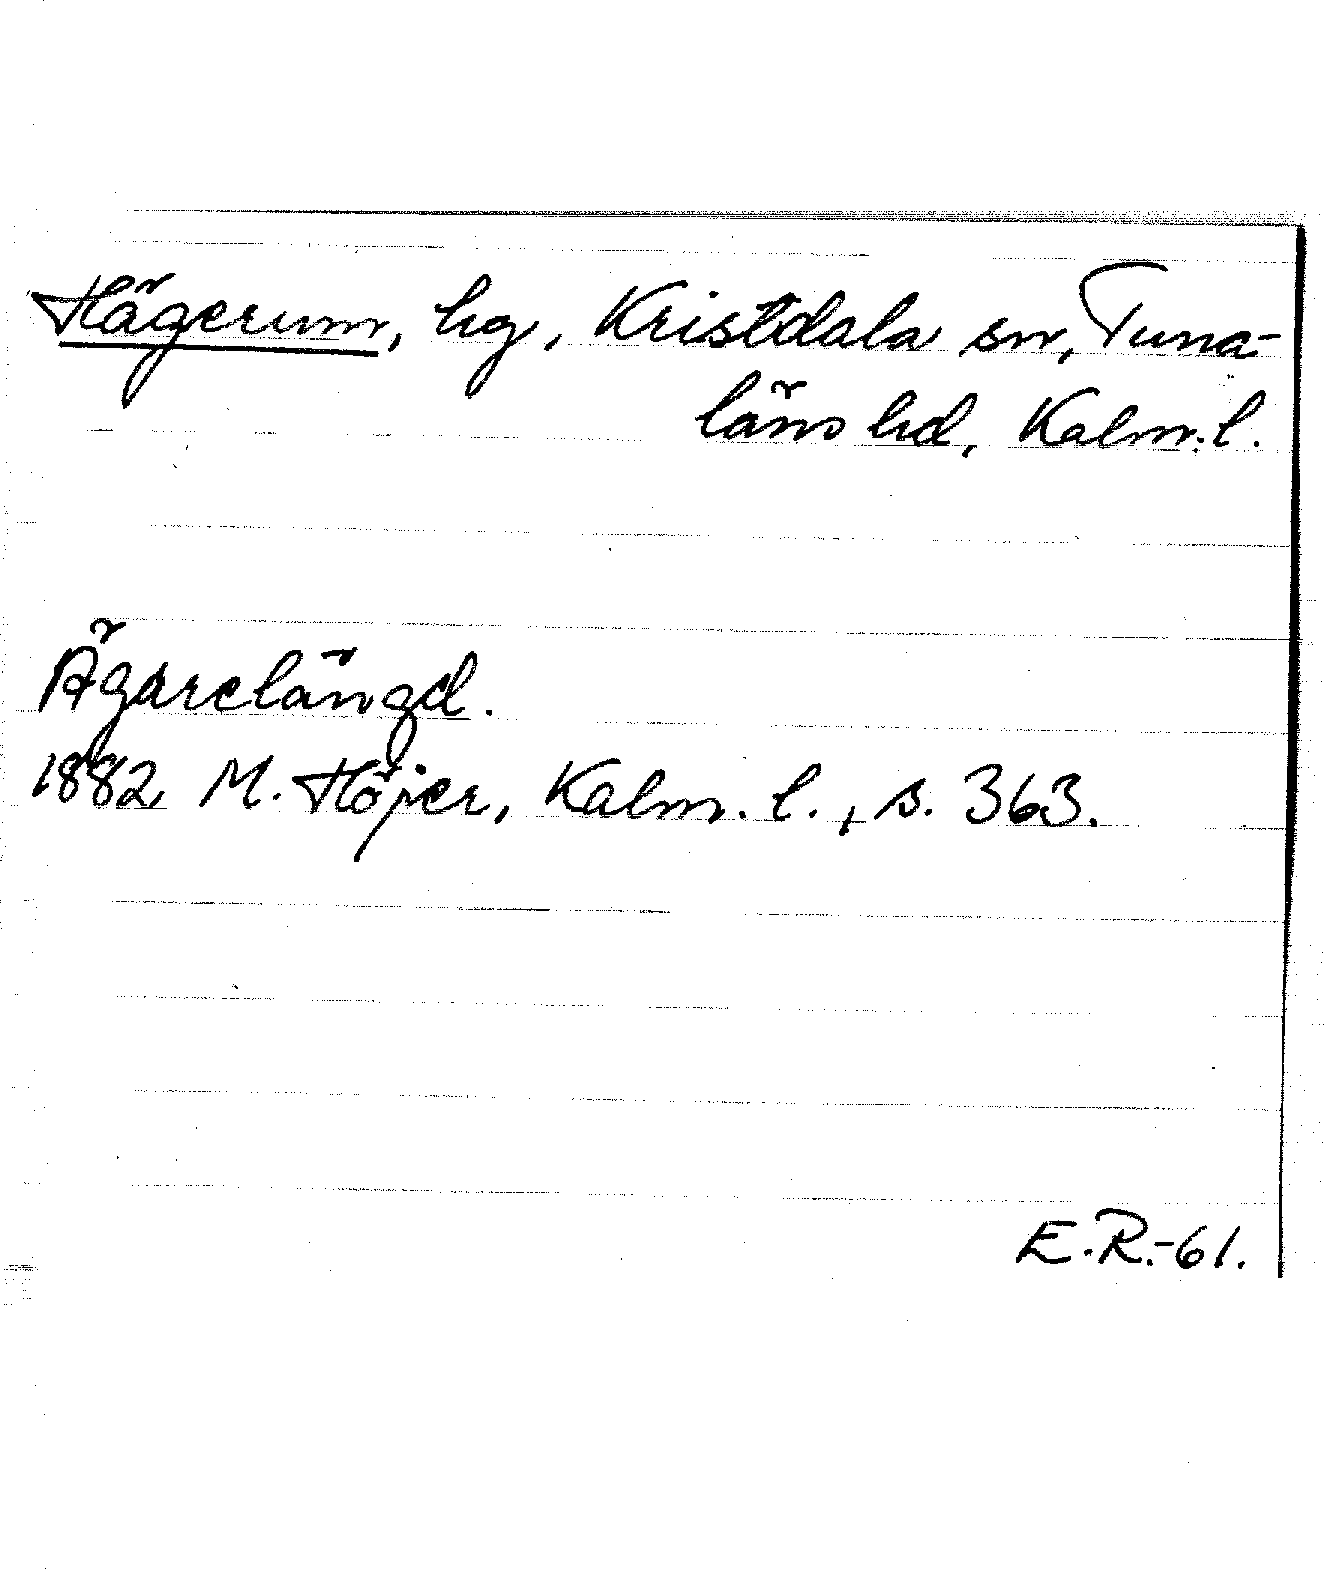 Hägerum, hg, Kristdala sn, Tuna-
läns hd, Kalm. l.
Ägarelängd.
1882 M. Höjer, Kalm. l., s. 363.
E.R.-61.